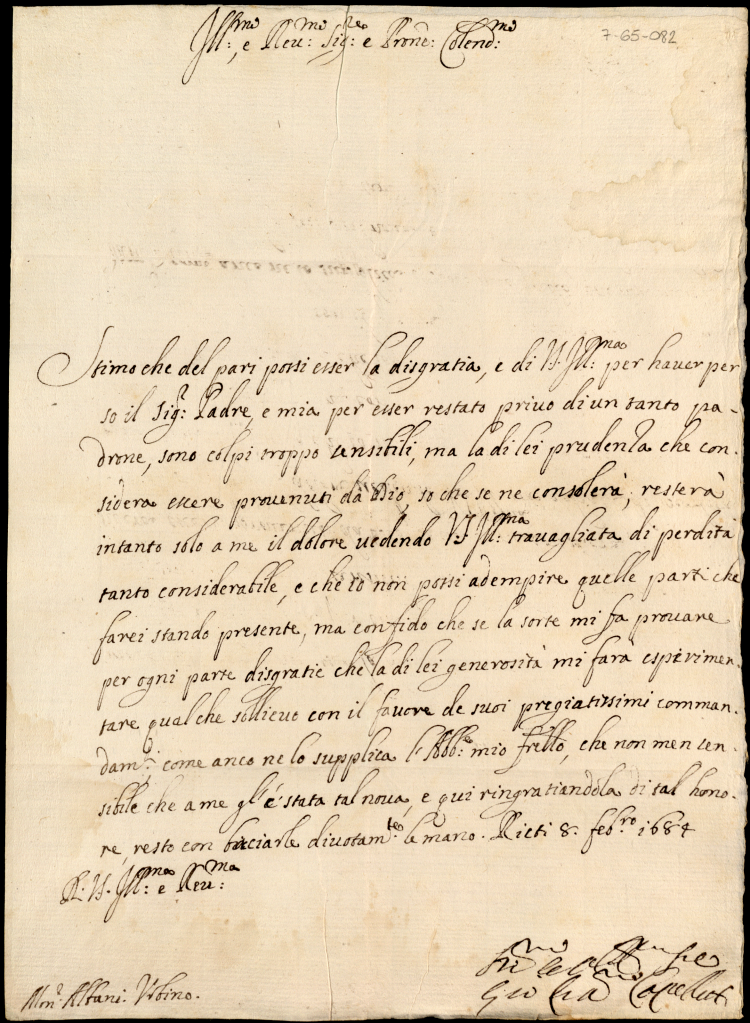 Ill:mo e Reu:mo Sig:re e Prone: Colend:mo
7-65-082
Stimo che del pari possi esser la disgratia, e di V.S. Ill:ma per hauer per
so il Sig:r Padre, e mia per esser restato priuo di un tanto pa-
drone, sono colpi troppo sensibili, ma la di lei prudenza che con-
sidera essere prouenuti da Dio, so che se ne consolerà, resterà
intanto solo a me il dolore uedendo V.S. Ill:ma trauagliata di perdita
tanto considerabile, e che io non possi adempire quelle parti che
farei stando presente, ma confido che se la sorte mi fa prouare
per ogni parte disgratie che la di lei generosità mi farà esperimen-
tare qualche sollieuo con il fauore de suoi pregiatissimi comman-
dam:ti come anco ne lo supplica l'Abb:e mio frello, che non men sen-
sibile che a me gl'è stata tal noua, e qui ringratiandola di tal hono-
re, resto con baciarle diuotam:te le mano. Rieti 8. feb:ro 1684
D: V.S. Ill:ma e Reu:ma
Mon:r Albani: Vrbino.